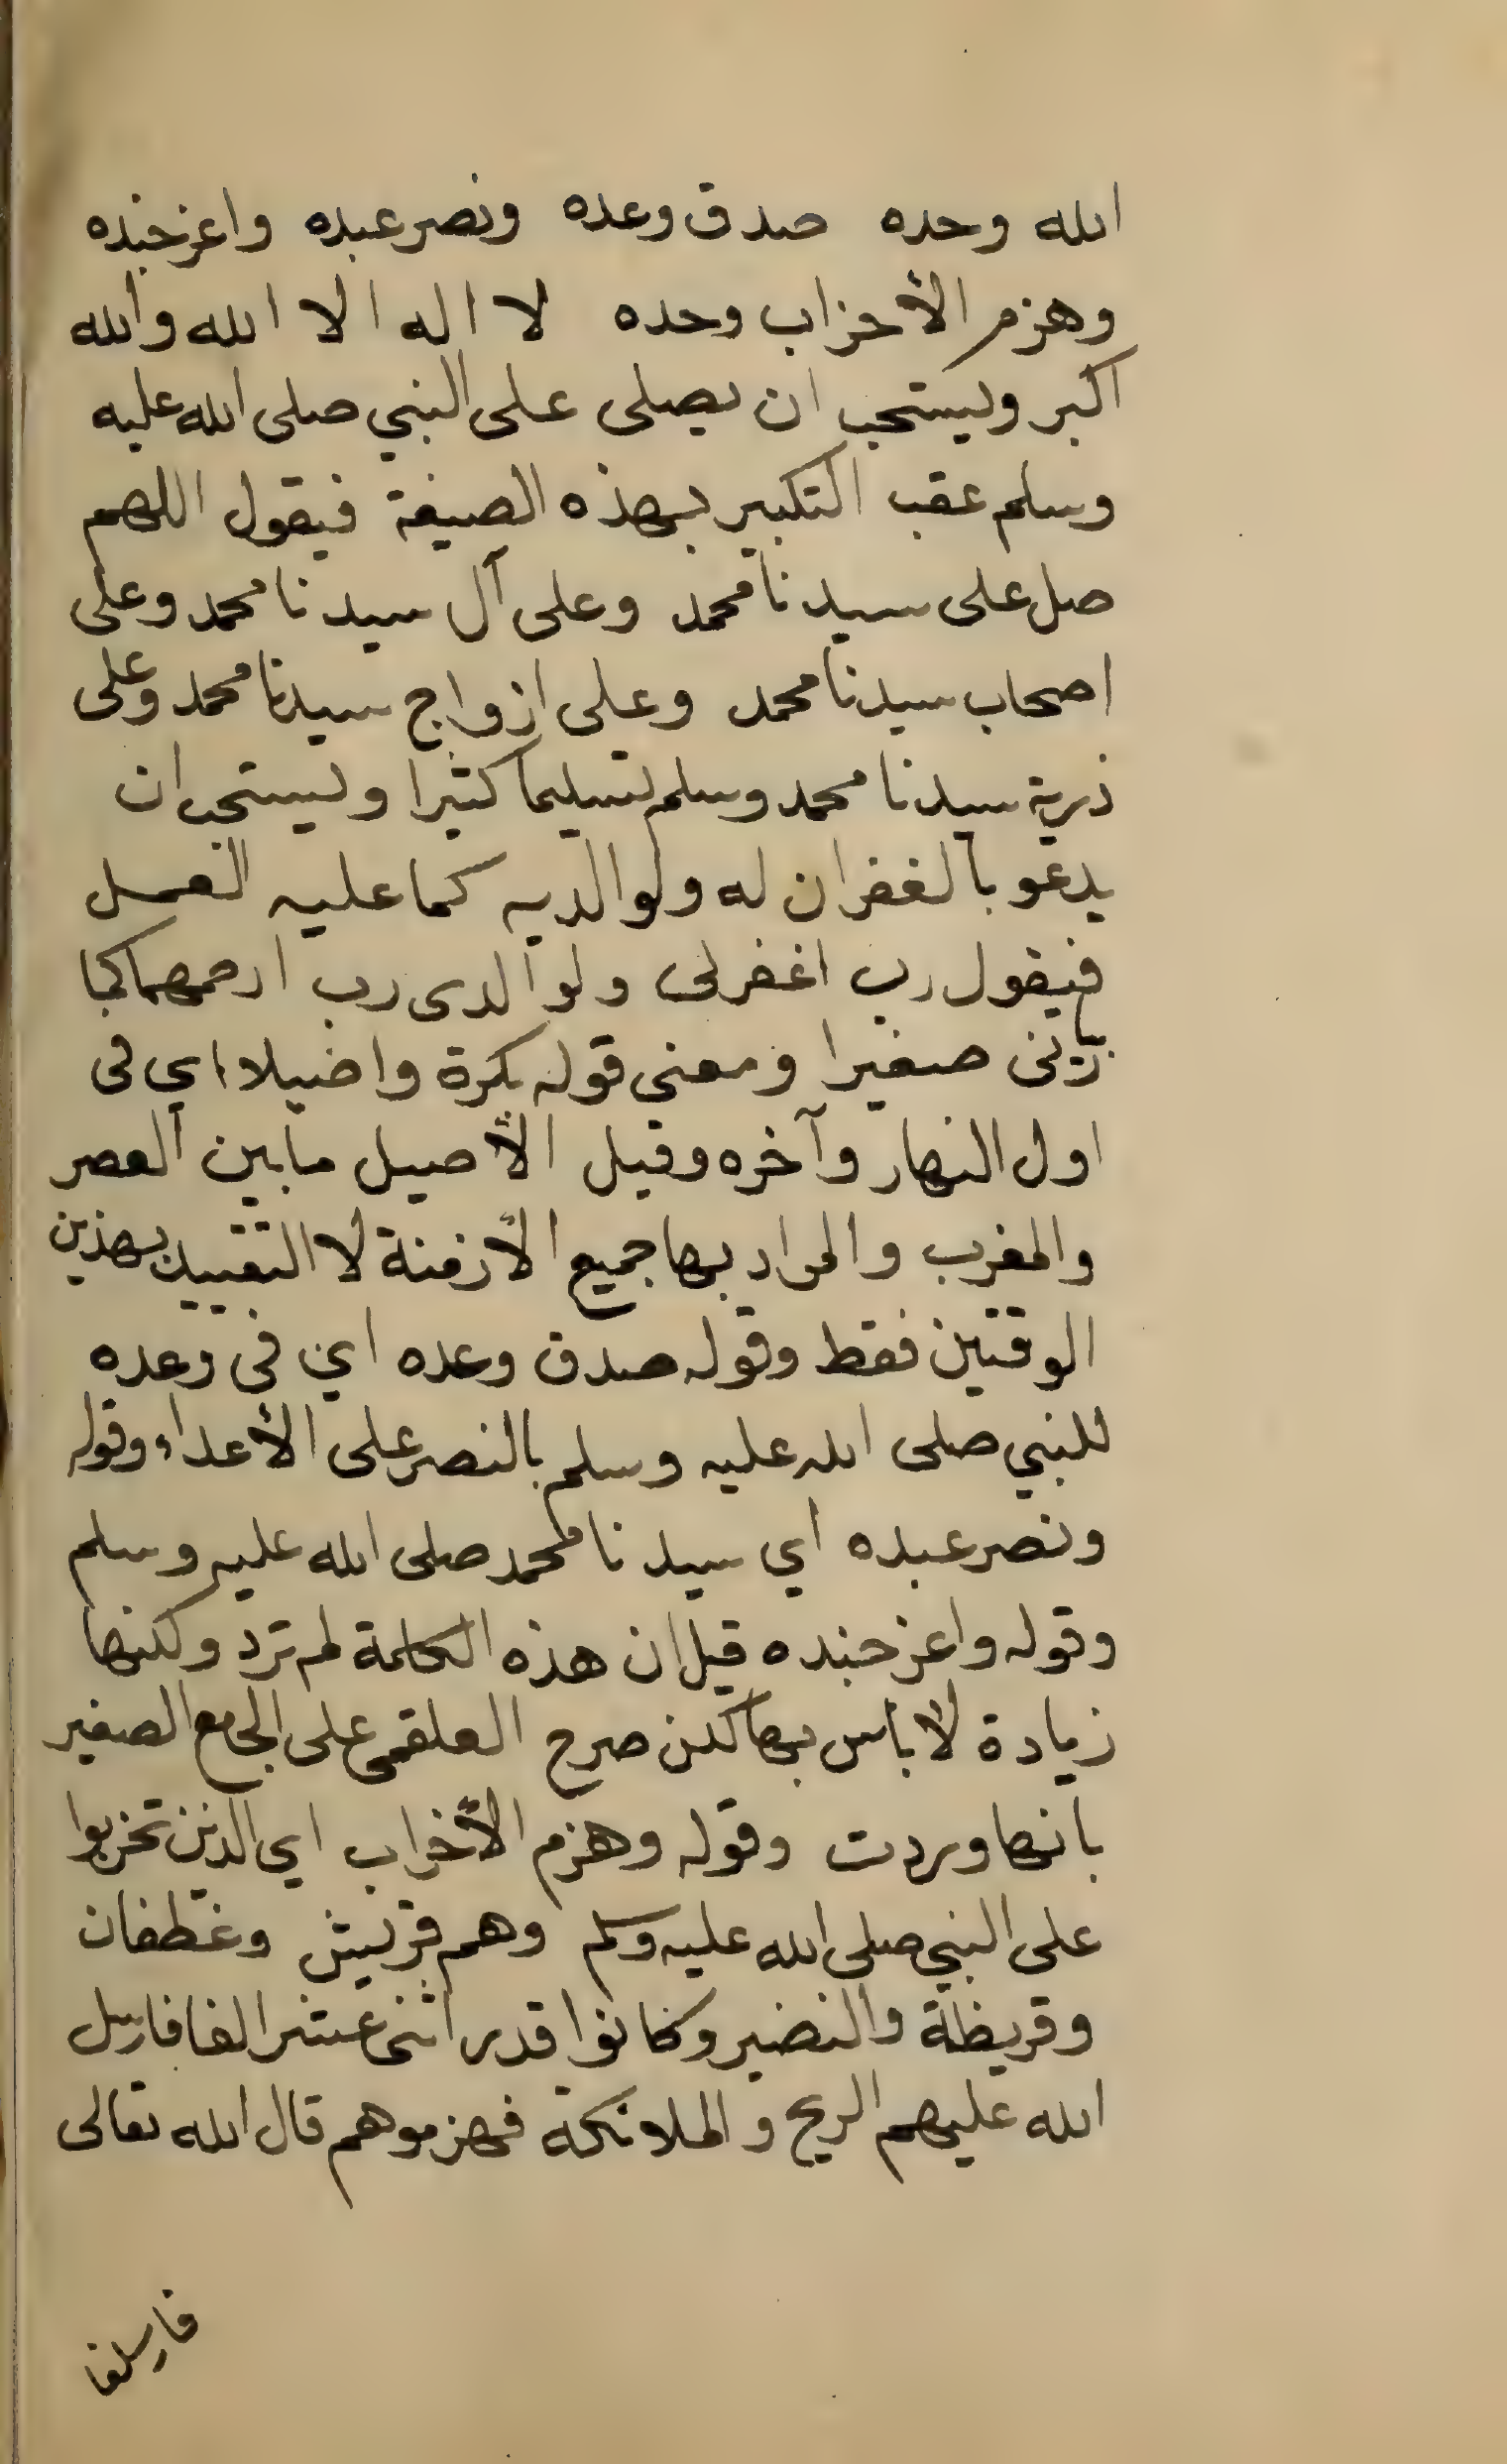 الله وحده صدق وعده ونصر عبده واعز جنده
وهزم الأحزاب وحده لا اله الا الله والله
اكبر ويستحب ان يصلى على النبي صلى الله عليه
وسلم عقب التكبير بهذه الصيغة فيقول اللهم
صل على سيدنا محمد وعلى آل سيدنا محمد وعلى
اصحاب سيدنا محمد وعلى ازواج سيدنا محمد وعلى
ذرية سيدنا محمد وسلم تسليما كثيرا ويستحب ان
يدعو بالغفران له ولوالديه كما عليه العمل
فيقول رب اغفر لى ولوالدى رب ارحمهما كما
ربيانى صغيرا ومعنى قوله بكرة واصيلا اي فى
اول النهار وآخره وقيل الأصيل ما بين العصر
والمغرب والمراد بها جميع الأزمنة لا التقييد بهذين
الوقتين فقط وقوله صدق وعده اي فى وعده
للنبي صلى الله عليه وسلم بالنصر على الأعداء وقوله
ونصر عبده اي سيدنا محمد صلى الله عليه وسلم
وقوله واعز جنده قيل ان هذه الكلمة لم ترد ولكنها
زيادة لا بأس بها لكن صرح العلقمى على الجامع الصغير
بانها وردت وقوله وهزم الأحزاب اي الذين تحزبوا
على النبي صلى الله عليه وسلم وهم قريش وغطفان
وقريظة والنضير وكانوا قدر اثنى عشر الفا فارسل
الله عليهم الريح والملائكة فهزموهم قال الله تعالى
فارسلنا